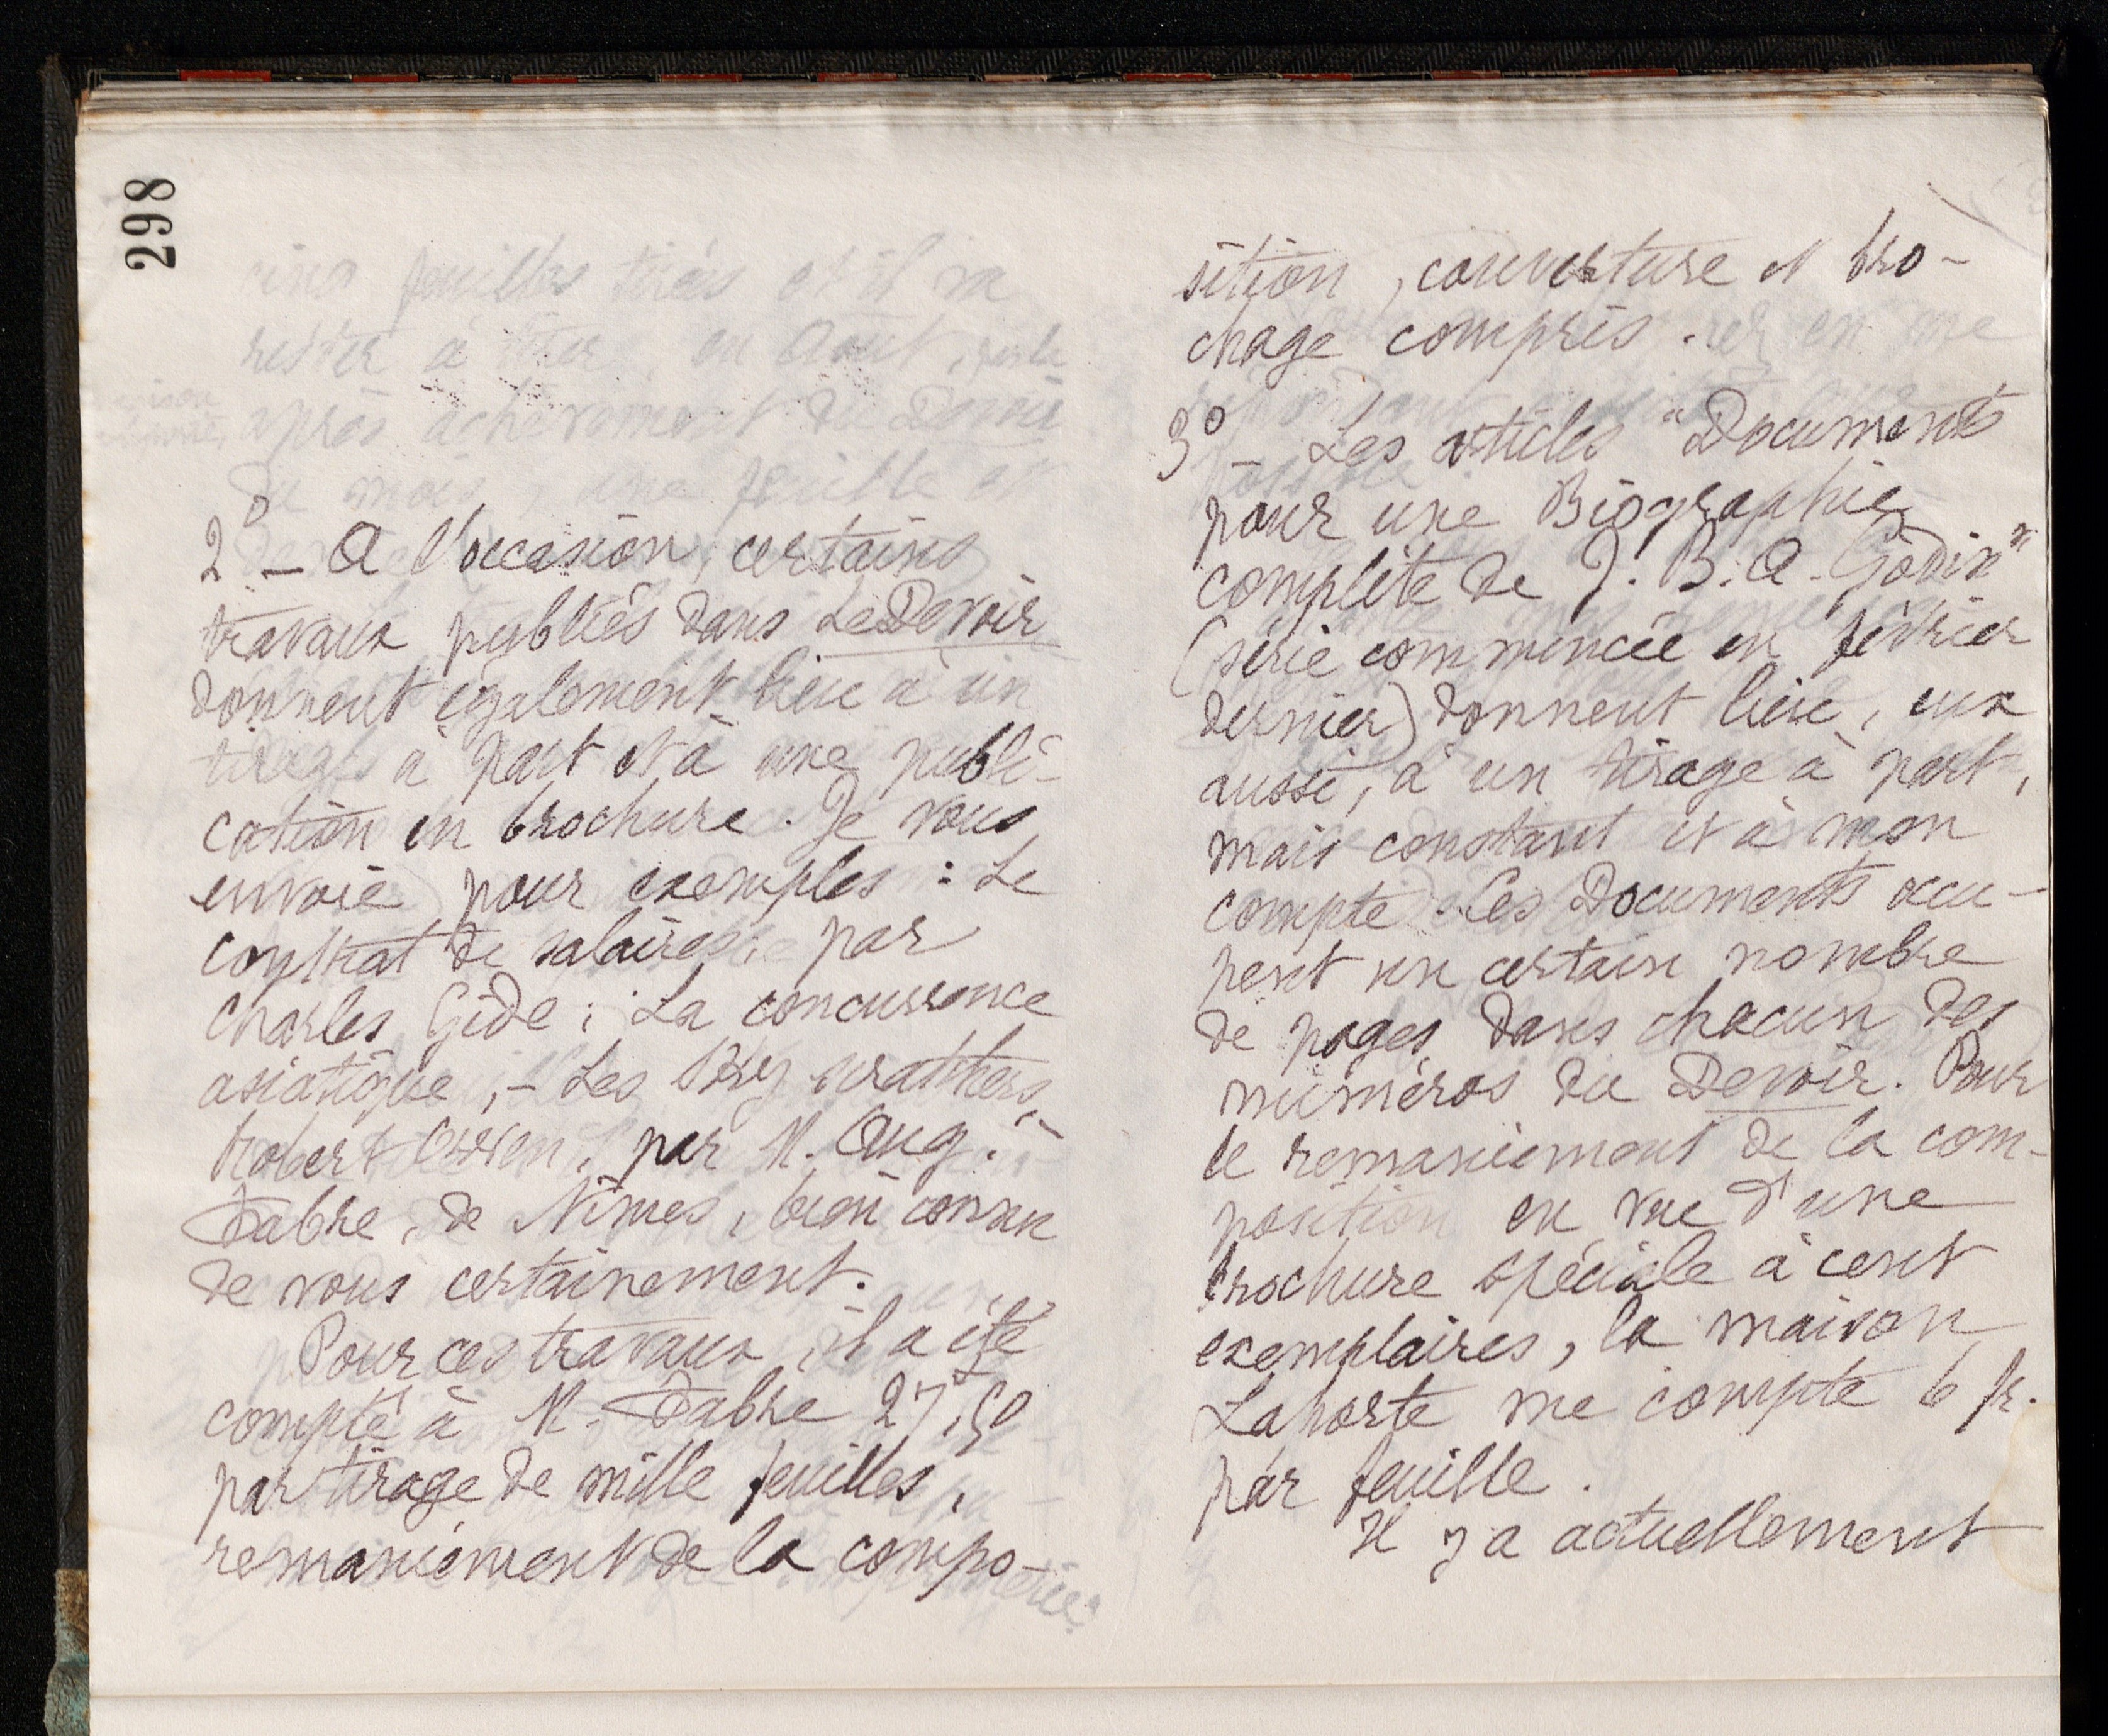 298
2° – A l'occasion, certains
travaux publiés dans Le Devoir
donnent également lieu à un
tirage à part et à une publi-
cation en brochure. Je vous
envoie pour exemples : Le
contrat de salaire par
Charles Gide ; La concurrence
asiatique, – Les
Robert Owen, par M. Aug.
Fabre, de Nîmes, bien connu
de vous certainement.
Pour ces travaux, il a été
compté à M. Fabre 27f,50
par tirage de mille feuilles,
remaniement de la compo-
sition, couverture et bro-
chage compris.
3° – Les articles "Documents
pour une Biographie
complète de J. B. A. Godin"
(série commencée en février
dernier) donnent lieu, eux
aussi, à un tirage à part,
mais constant et à mon
compte. Ces Documents occu-
pent un certain nombre
de pages dans chacun des
numéros du Devoir. Pour
le remaniement de la com-
position en vue d'une
brochure spéciale à cent
exemplaires, la maison
Laporte me compte 6 fr.
par feuille.
Il y a actuellement